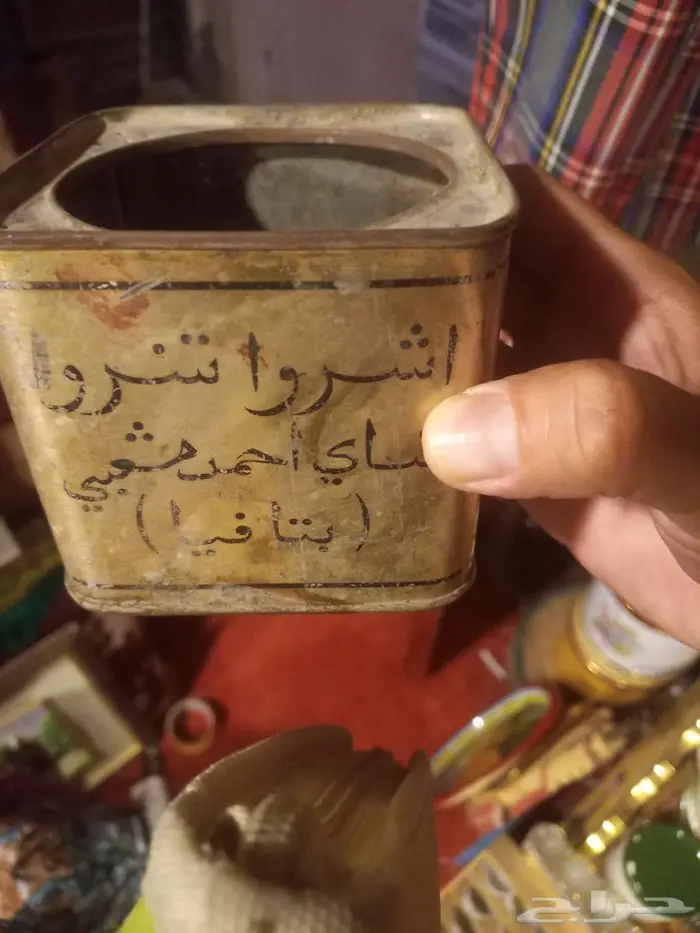 اشروا تنروا
شاي احمد مشعبي
(بتافيا)
حراج